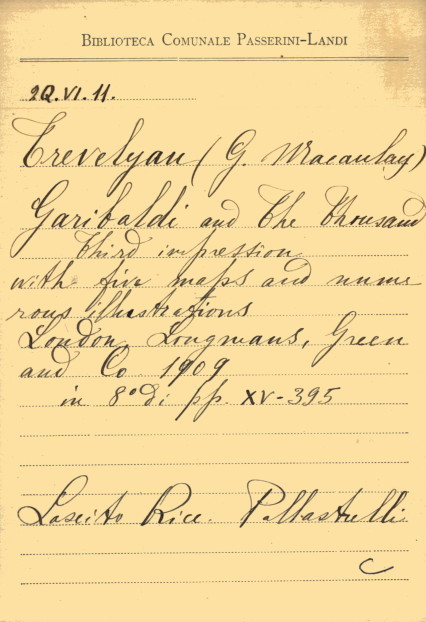 BIBLIOTECA COMUNALE PASSERINI-LANDI
2Q.VI.11.
Trevelyan (G. Macaulay)
Garibaldi and The Thousand
Third impression
with five maps and nume
rous illustrations
London, Longmans, Green
and Co 1909
in 8° di pp. XV-395
Lascito Rice. Pallastrelli
C